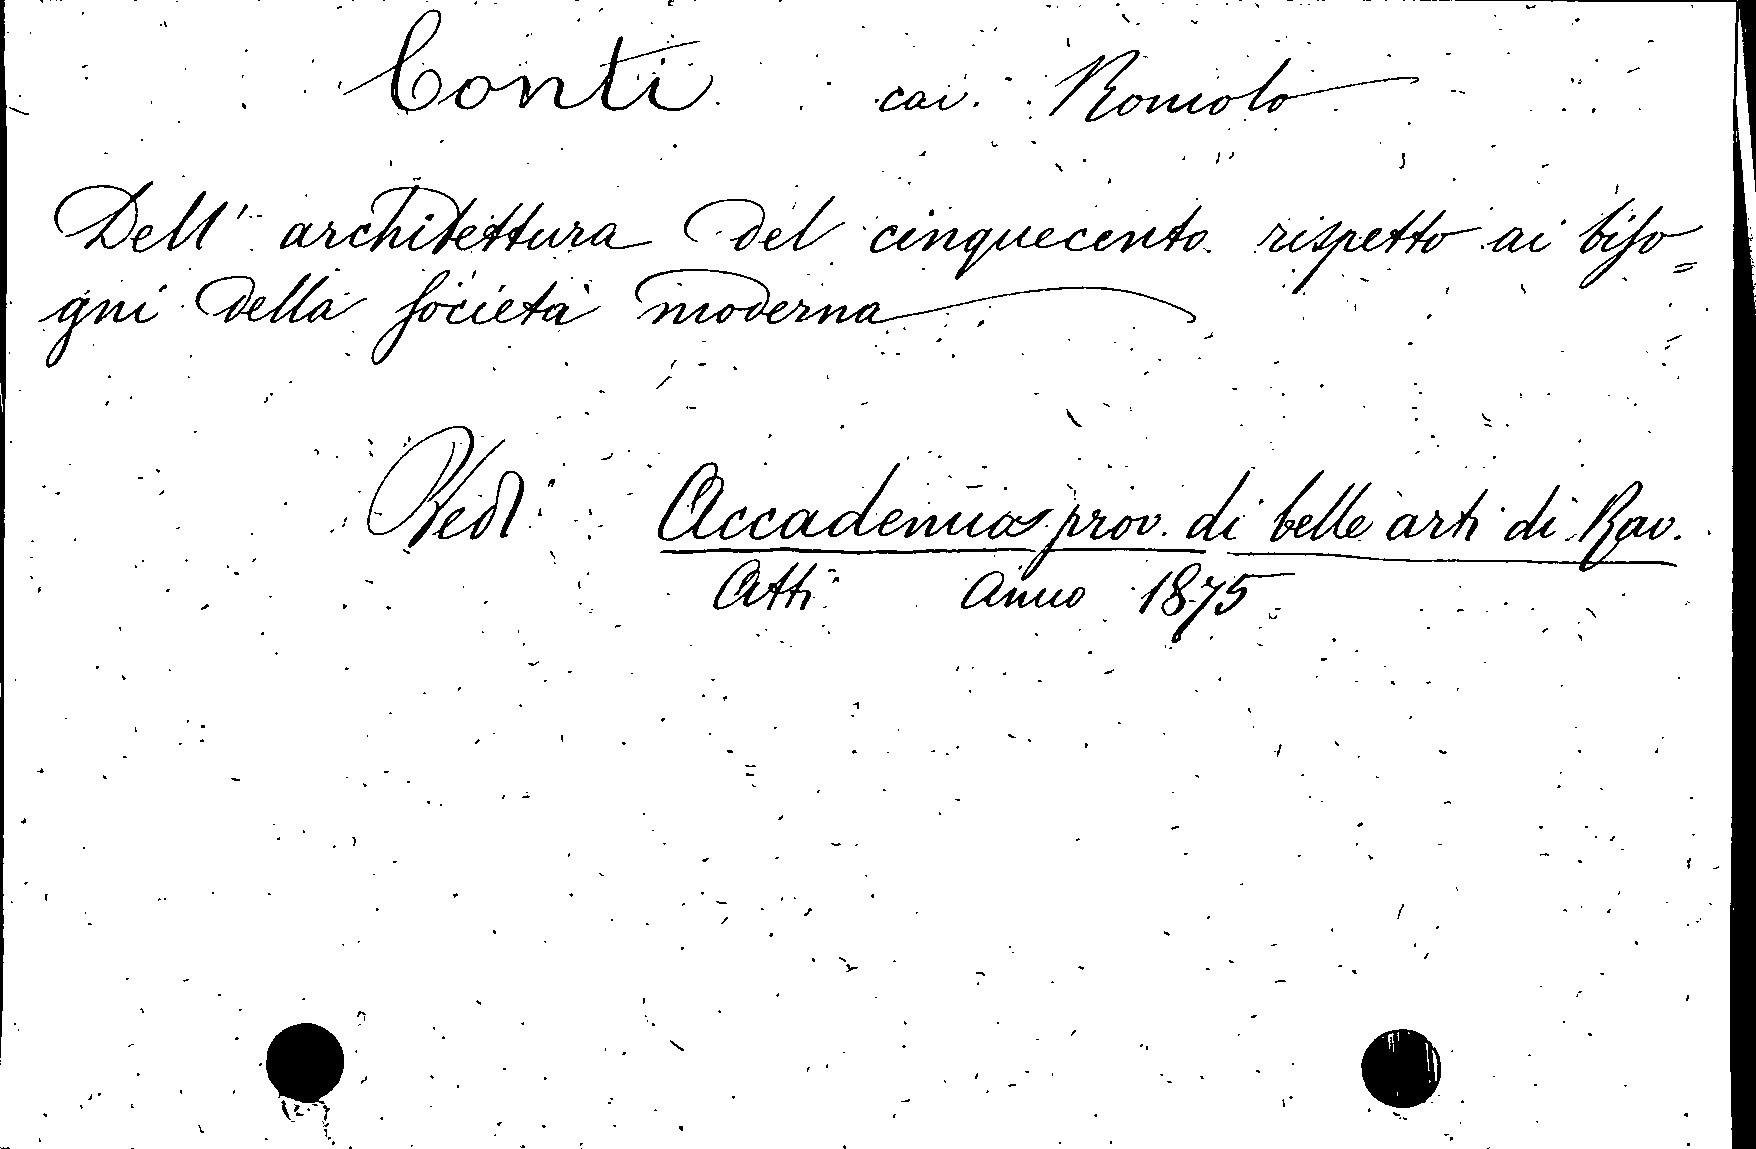 Conti cav. Romolo
Dell' architettura del cinquecento rispetto ai biso=
gni della società moderna
Vedi Accademia prov. di belle arti di Rav.
Atti Anno 1875